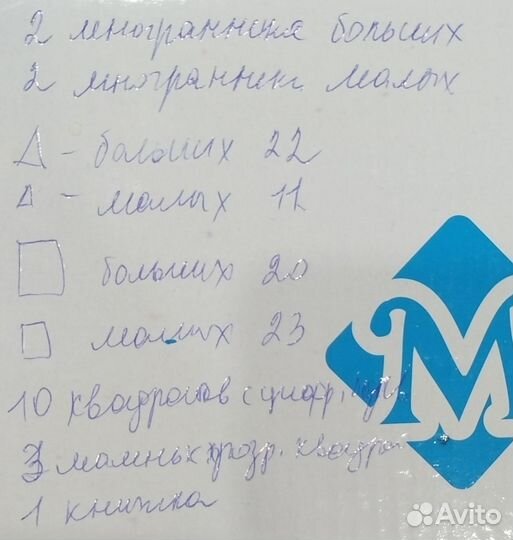 2 многранника больших
2 многранник малых
- больших 22
- малых 11
больших 20
малых 23
10 квадратов с цифр,
3 маленьк прозр. квадрат
1 книжка
M
Avito